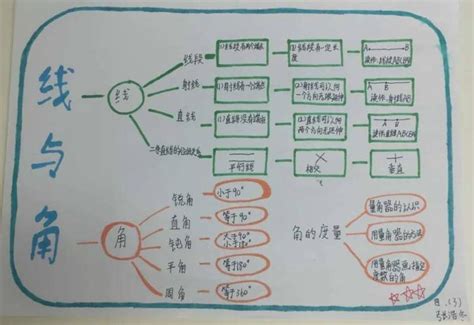 线与角
线
线段
(1)线段有两个端点
(2)线段有一定长度
A B
读作:线段AB(BA)
射线
(1)射线有一个端点
(2)射线可以向一个方向无限延伸
A B
读作:射线AB
直线
(1)直线没有端点
(2)直线可以向两个方向无限延伸
A B
读作:直线AB(BA)
二条直线的位置关系
平行线
相交
垂直
角
锐角
小于90°
直角
等于90°
钝角
大于90°
小于180°
平角
等于180°
周角
等于360°
角的度量
量角器的认识
用量角器的方法
用量角器画指定度数的角
四.(3)